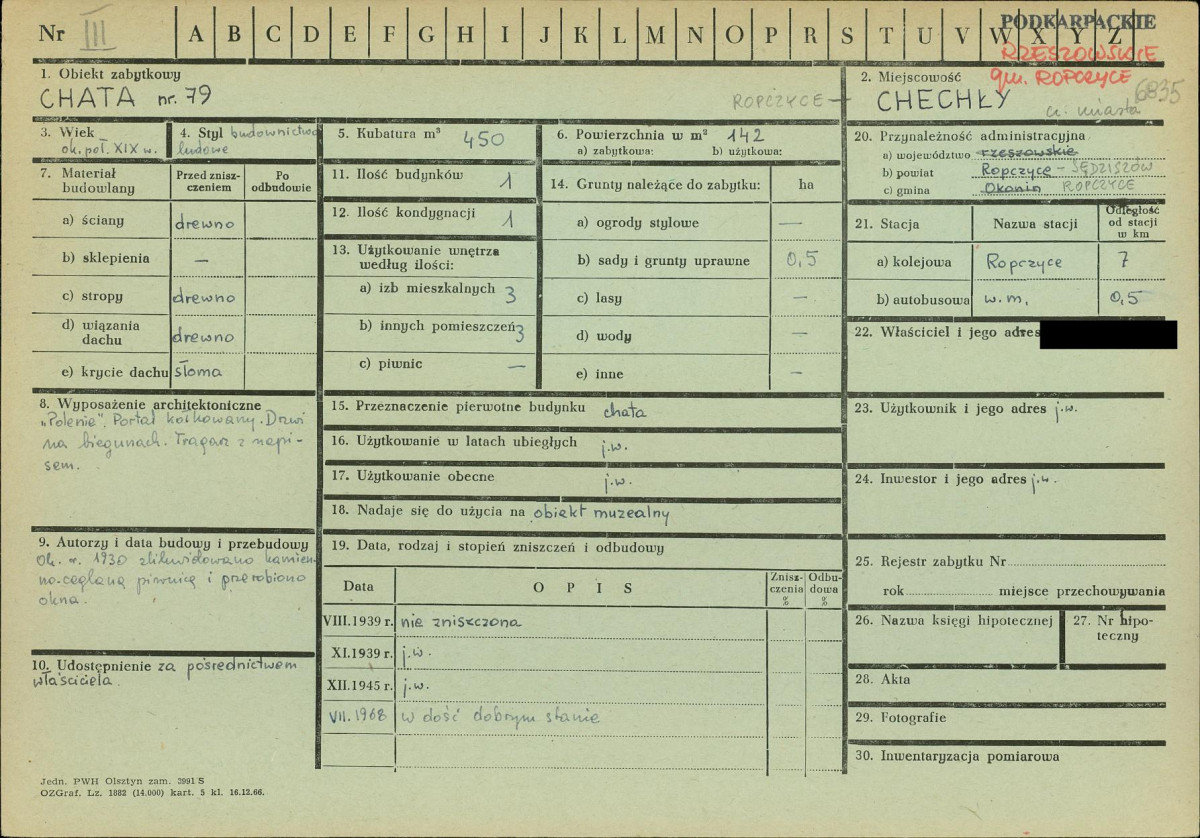 Nr III A B C D E F G H I J K L M N O P R S T U V W X Y Z
PODKARPACKIE
RZESZOWSKIE
gm. ROPCZYCE
6835
1. Obiekt zabytkowy
CHATA nr. 79
ROPCZYCE –
2. Miejscowość
CHECHŁY
cz. miasta
3. Wiek
ok. poł. XIX w.
4. Styl budownictwo
ludowe
5. Kubatura m³ 450
6. Powierzchnia w m² 142
a) zabytkowa: b) użytkowa:
7. Materiał budowlany
Przed znisz-
czeniem
Po
odbudowie
a) ściany drewno
b) sklepienia —
c) stropy drewno
d) wiązania
dachu drewno
e) krycie dachu słoma
8. Wyposażenie architektoniczne
„Polenie”. Portal kołkowany. Drzwi
na biegunach. Tragarz z napi-
sem.
9. Autorzy i data budowy i przebudowy
Ok. r. 1930 zlikwidowano kamien-
no-ceglaną piwnicę i przerobiono
okna.
10. Udostępnienie za pośrednictwem
właściciela.
11. Ilość budynków 1
12. Ilość kondygnacji 1
13. Użytkowanie wnętrza
według ilości:
a) izb mieszkalnych 3
b) innych pomieszczeń 3
c) piwnic —
14. Grunty należące do zabytku: ha
a) ogrody stylowe —
b) sady i grunty uprawne 0,5
c) lasy —
d) wody —
e) inne —
15. Przeznaczenie pierwotne budynku chata
16. Użytkowanie w latach ubiegłych j.w.
17. Użytkowanie obecne j.w.
18. Nadaje się do użycia na obiekt muzealny
19. Data, rodzaj i stopień zniszczeń i odbudowy
Data OPIS
Znisz-
czenia
%
Odbu-
dowa
%
VIII.1939 r. nie zniszczona
XI.1939 r. j.w.
XII.1945 r. j.w.
VII.1968 w dość dobrym stanie
20. Przynależność administracyjna
a) województwo rzeszowskie
b) powiat Ropczyce – SĘDZISZÓW
c) gmina Okonin ROPCZYCE
21. Stacja Nazwa stacji
Odległość
od stacji
w km
a) kolejowa Ropczyce 7
b) autobusowa w.m. 0,5
22. Właściciel i jego adres
23. Użytkownik i jego adres j.w.
24. Inwestor i jego adres j.w.
25. Rejestr zabytku Nr
rok miejsce przechowywania
26. Nazwa księgi hipotecznej
27. Nr hipo-
teczny
28. Akta
29. Fotografie
30. Inwentaryzacja pomiarowa
Jedn. PWH Olsztyn zam. 3991 S
OZGraf. Lz. 1882 (14.000) kart. 5 kl. 16.12.66.